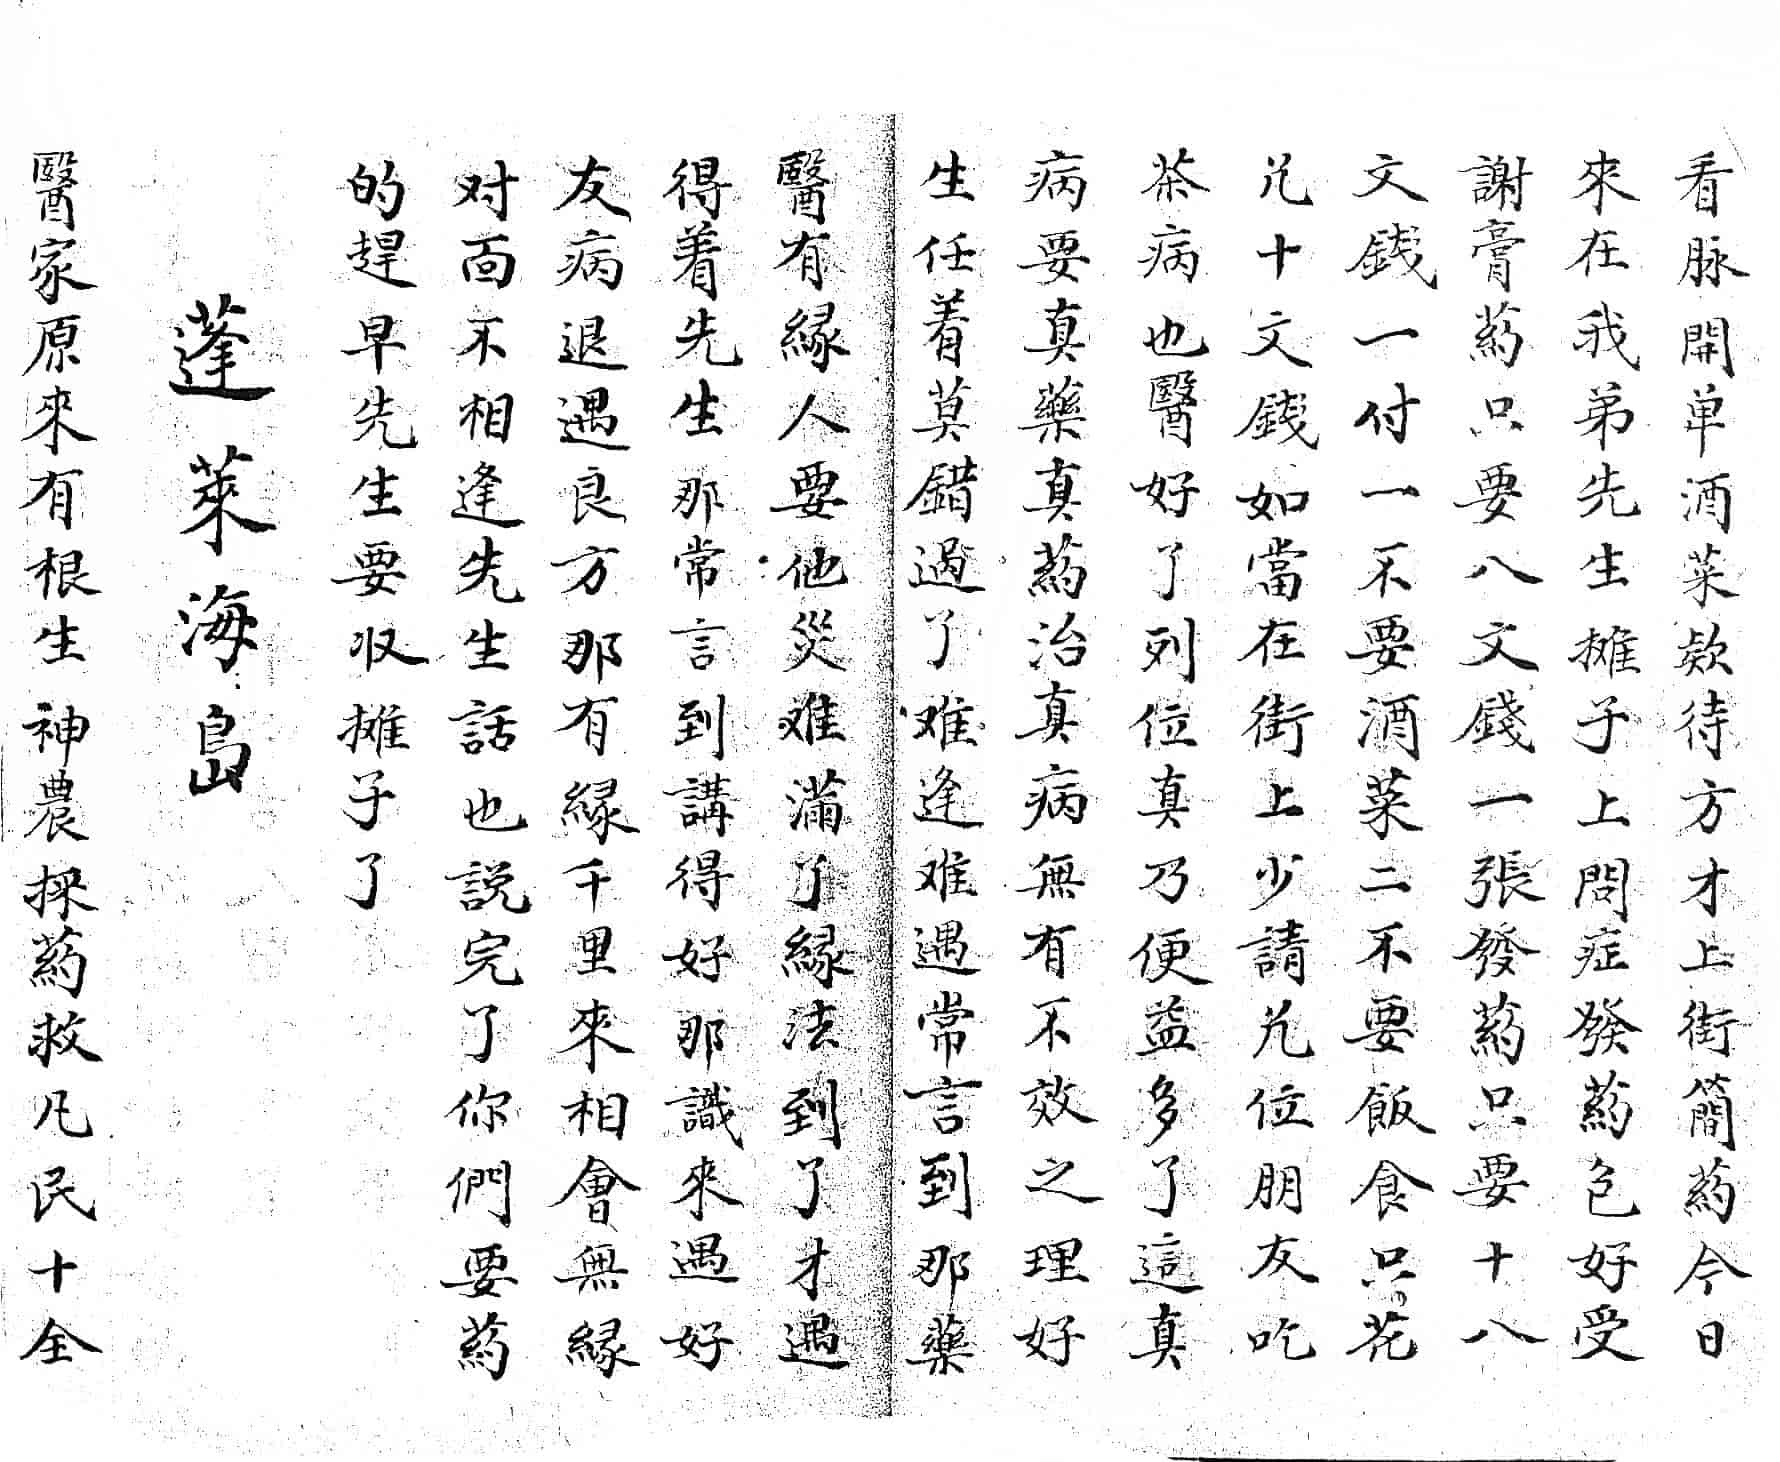 看脉開单酒菜欵待方才上街簡葯今日
來在我弟先生攤子上問症發葯包好受
謝膏葯只要八文錢一張發葯只要十八
文錢一付一不要酒菜二不要飯食只花
九十文錢如當在街上少請九位朋友吃
茶病也醫好了列位真乃便益多了這真
病要真藥真葯治真病無有不效之理好
生任着莫錯過了难逢难遇常言到那藥
醫有緣人要他災难滿了緣法到了才遇
得着先生那常言到講得好那識來遇好
友病退遇良方那有緣千里來相會無緣
对面不相逢先生話也説完了你們要葯
的趕早先生要収攤子了
蓬萊海島
醫家原來有根生神農採葯救凡民十全